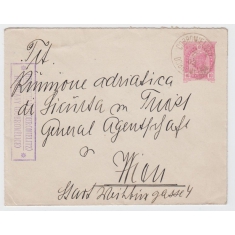 Tit.
Riunione adriatica
di Sicurta in Triest
General Agentschaft
in
Wien
Stadt Weihburggasse 4